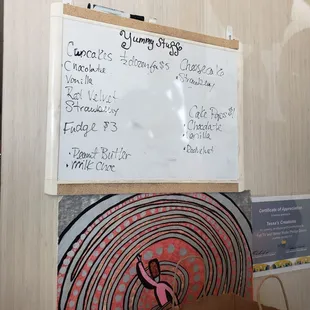 Yummy Stuffs
Cupcakes ½ dozen for $5
Chocolate
Vanilla
Red Velvet
Strawberry
Fudge $3
• Peanut Butter
• Milk Choc
Cheesecake
• Strawberry
Cake
• Chocolate
• Vanilla
Certificate of Appreciation